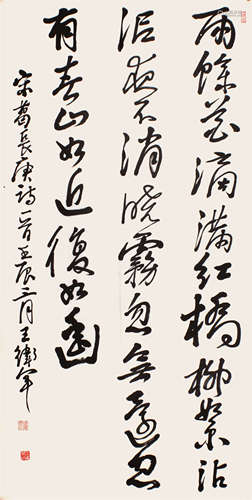 雨餘花滴滿紅橋柳絮沾
泥夜不消曉霧忽無還忽
有春山如近復如遙
宋葛長庚詩一首壬辰三月王衛軍